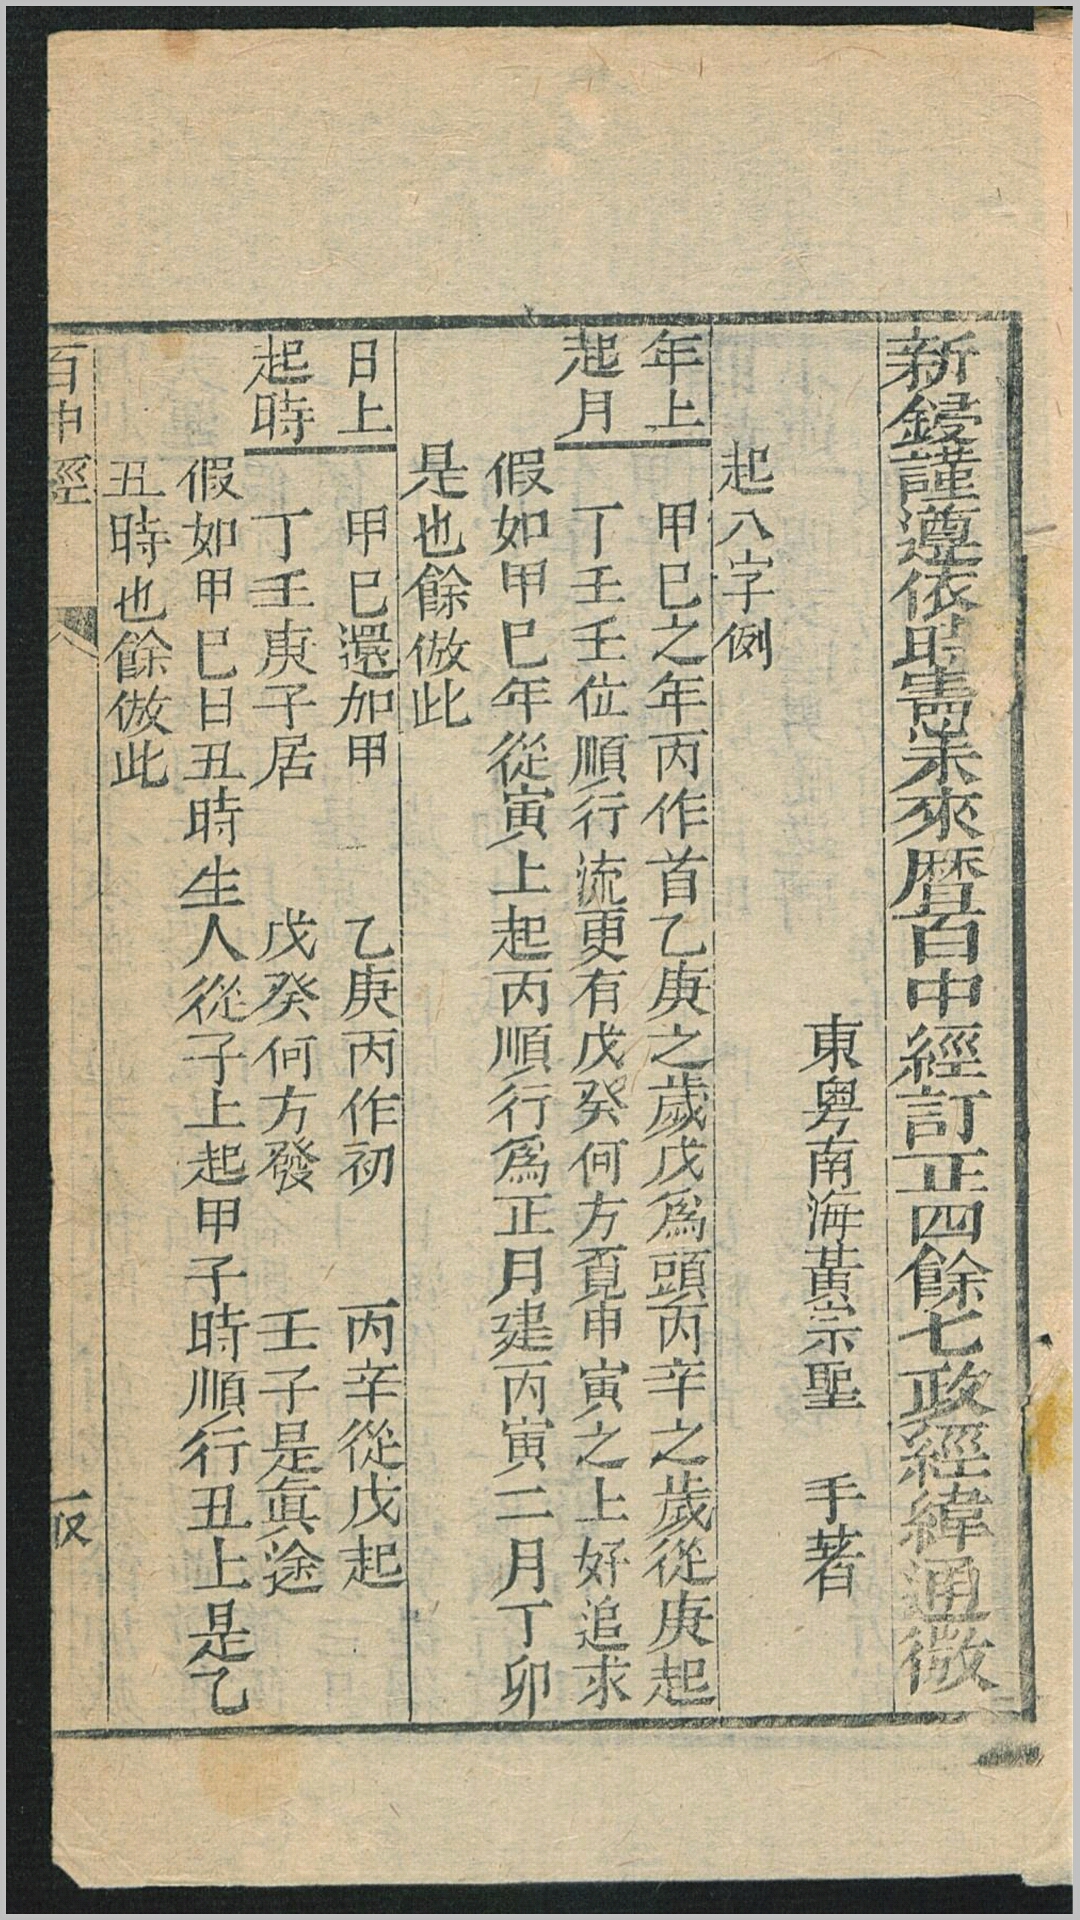 新鋟謹遵依時憲未來曆百中經訂正四餘七政經緯通微
東粵南海黃宗聖　手著
起八字例
年上
起月
甲巳之年丙作首乙庚之歲戊爲頭丙辛之歲從庚起
丁壬壬位順行流更有戊癸何方覔甲寅之上好追求
假如甲巳年從寅上起丙順行爲正月建丙寅二月丁卯
是也餘倣此
日上
起時
甲巳還加甲　乙庚丙作初　丙辛從戊起
丁壬庚子居　戊癸何方發　壬子是眞途
假如甲巳日丑時生人從子上起甲子時順行丑上是乙
丑時也餘倣此
百中經